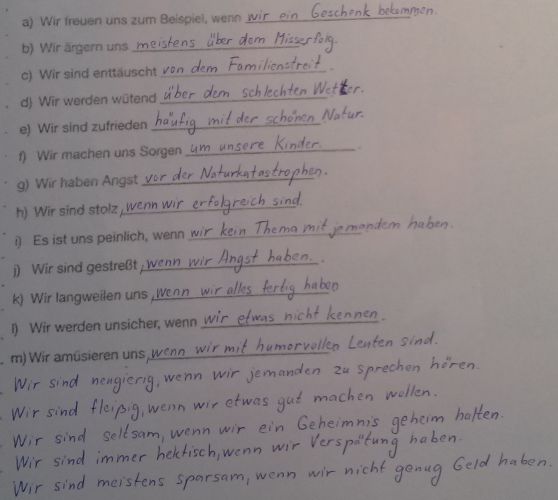 a) Wir freuen uns zum Beispiel, wenn wir ein Geschenk bekommen.
b) Wir ärgern uns meistens über dem Misserfolg.
c) Wir sind enttäuscht von dem Familienstreit.
d) Wir werden wütend über dem schlechten Wetter.
e) Wir sind zufrieden häufig mit der schönen Natur.
f) Wir machen uns Sorgen um unsere Kinder.
g) Wir haben Angst vor der Naturkatastrophen.
h) Wir sind stolz, wenn wir erfolgreich sind.
i) Es ist uns peinlich, wenn wir kein Thema mit jemandem haben.
j) Wir sind gestreßt, wenn wir Angst haben.
k) Wir langweilen uns, wenn wir alles fertig haben
l) Wir werden unsicher, wenn wir etwas nicht kennen.
m) Wir amüsieren uns, wenn wir mit humorvollen Leuten sind.
Wir sind neugierig, wenn wir jemanden zu sprechen hören.
Wir sind fleißig, wenn wir etwas gut machen wollen.
Wir sind seltsam, wenn wir ein Geheimnis geheim halten.
Wir sind immer hektisch, wenn wir Verspätung haben.
Wir sind meistens sparsam, wenn wir nicht genug Geld haben.